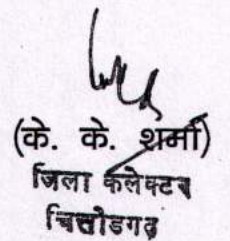 (के. के. शर्मा)
जिला कलेक्टर
चित्तोडगढ़